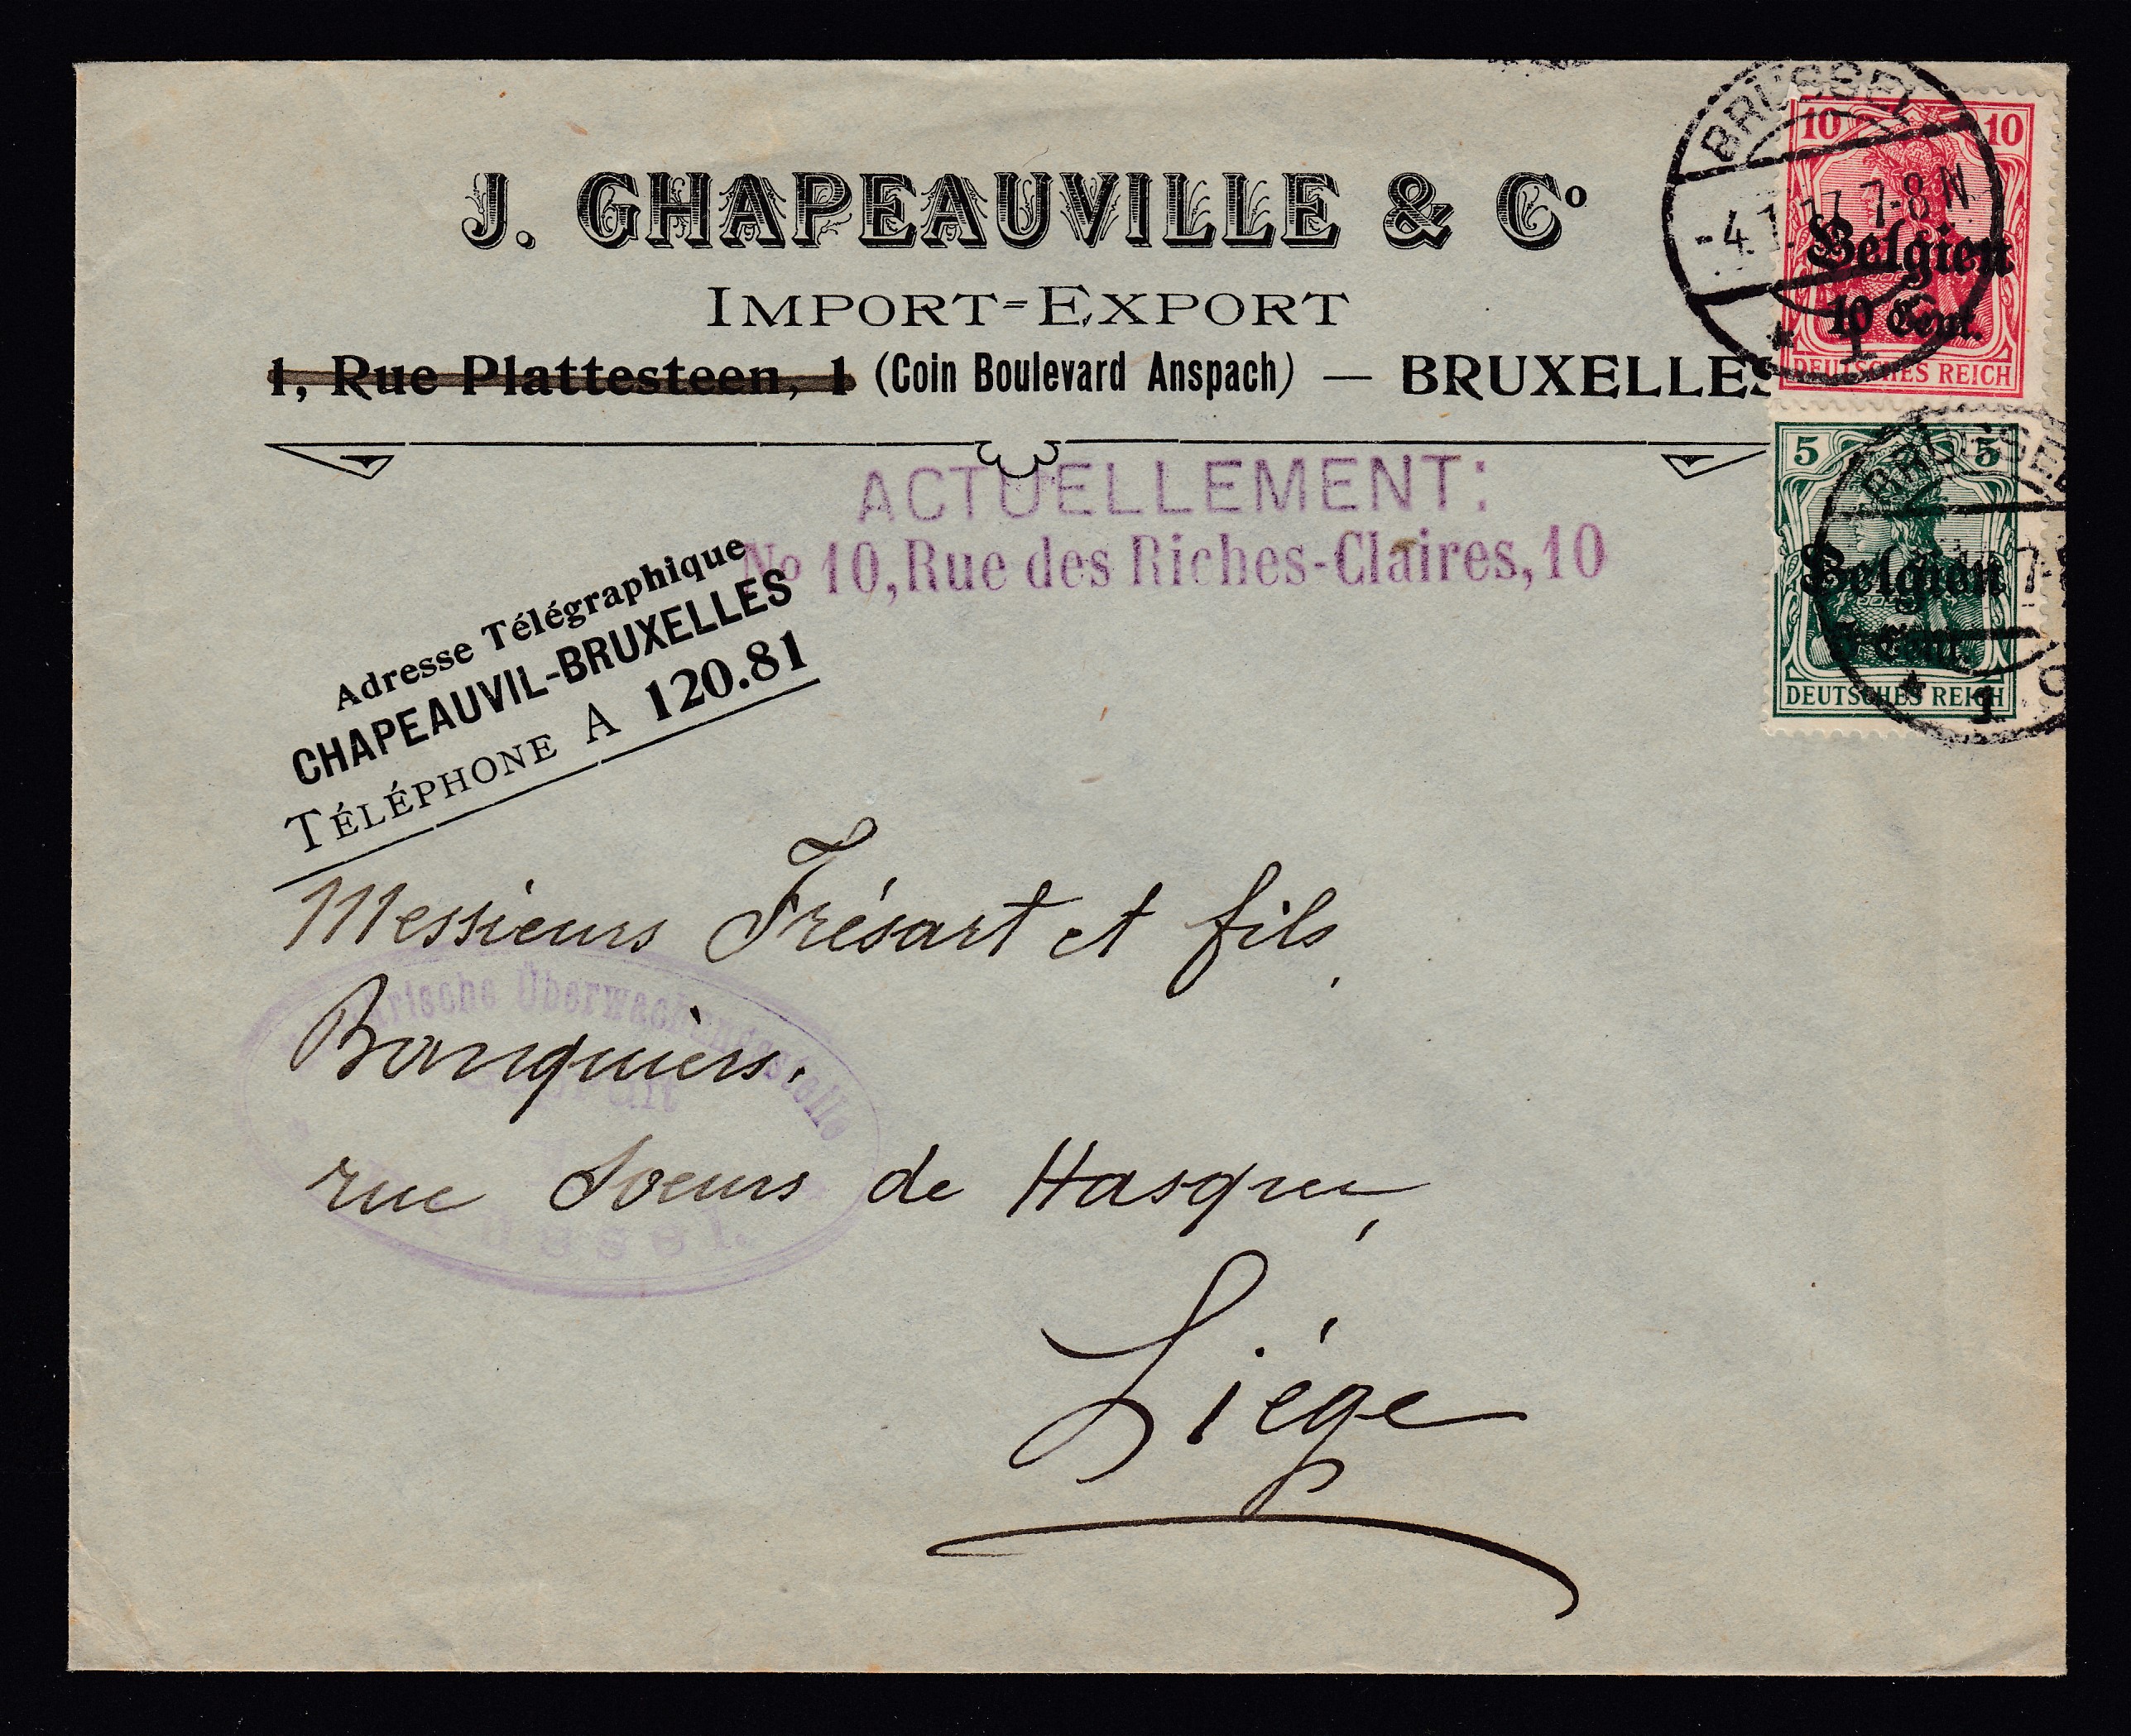 J. CHAPEAUVILLE & Cº
IMPORT-EXPORT
1, Rue Plattesteen, 1 (Coin Boulevard Anspach) — BRUXELLES
ACTUELLEMENT:
No 10, Rue des Riches-Claires, 10
Adresse Télégraphique
CHAPEAUVIL-BRUXELLES
TÉLÉPHONE A 120.81
BRÜSSEL
-4.1.17. 7-8 N
* 1
10 10
Belgien
10 Cent.
DEUTSCHES REICH
BRÜSSEL
5 5
Belgien
5 Cent.
DEUTSCHES REICH
* 1
Messieurs Frésart et fils,
Banquiers.
rue Soeurs de Hasque,
Liége
Überwachungsstelle